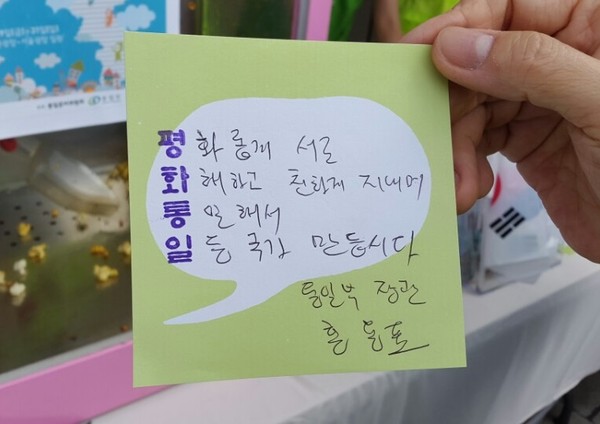 평화롭게 서로
화해하고 친하게 지내며
통일해서
일등 국가 만듭시다
통일부 장관